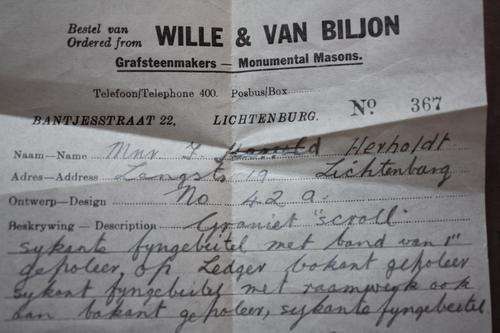 Bestel van
Ordered from WILLE & VAN BILJON
Grafsteenmakers — Monumental Masons.
Telefoon/Telephone 400. Posbus/Box
BANTJESSTRAAT 22, LICHTENBURG. No 367
Naam—Name Mnr J. Herholdt
Adres—Address Langst. 19 Lichtenburg
Ontwerp—Design No 42 a.
Beskrywing — Description Graniet "scroll"
sykante fyngebeitel met band van 1"
gepoleer, op Ledger bokant gepoleer
sykant fyngebeitel met raamwerk ook
aan bokant gepoleer, sykante fyngebeitel